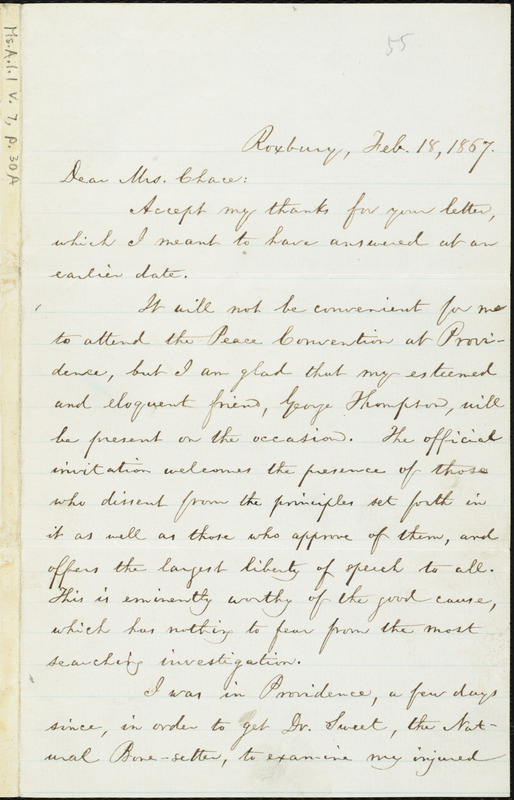 55
Ms.A.1.1 v. 7, p. 30A
Roxbury, Feb. 18, 1867.
Dear Mrs. Chace:
Accept my thanks for your letter,
which I meant to have answered at an
earlier date.
It will not be convenient for me
to attend the Peace Convention at Provi-
dence, but I am glad that my esteemed
and eloquent friend, George Thompson, will
be present on the occasion. The official
invitation welcomes the presence of those
who dissent from the principles set forth in
it as well as those who approve of them, and
offers the largest liberty of speech to all.
This is eminently worthy of the good cause,
which has nothing to fear from the most
searching investigation.
I was in Providence, a few days
since, in order to get Dr. Sweet, the Nat-
ural Bone-setter, to examine my injured